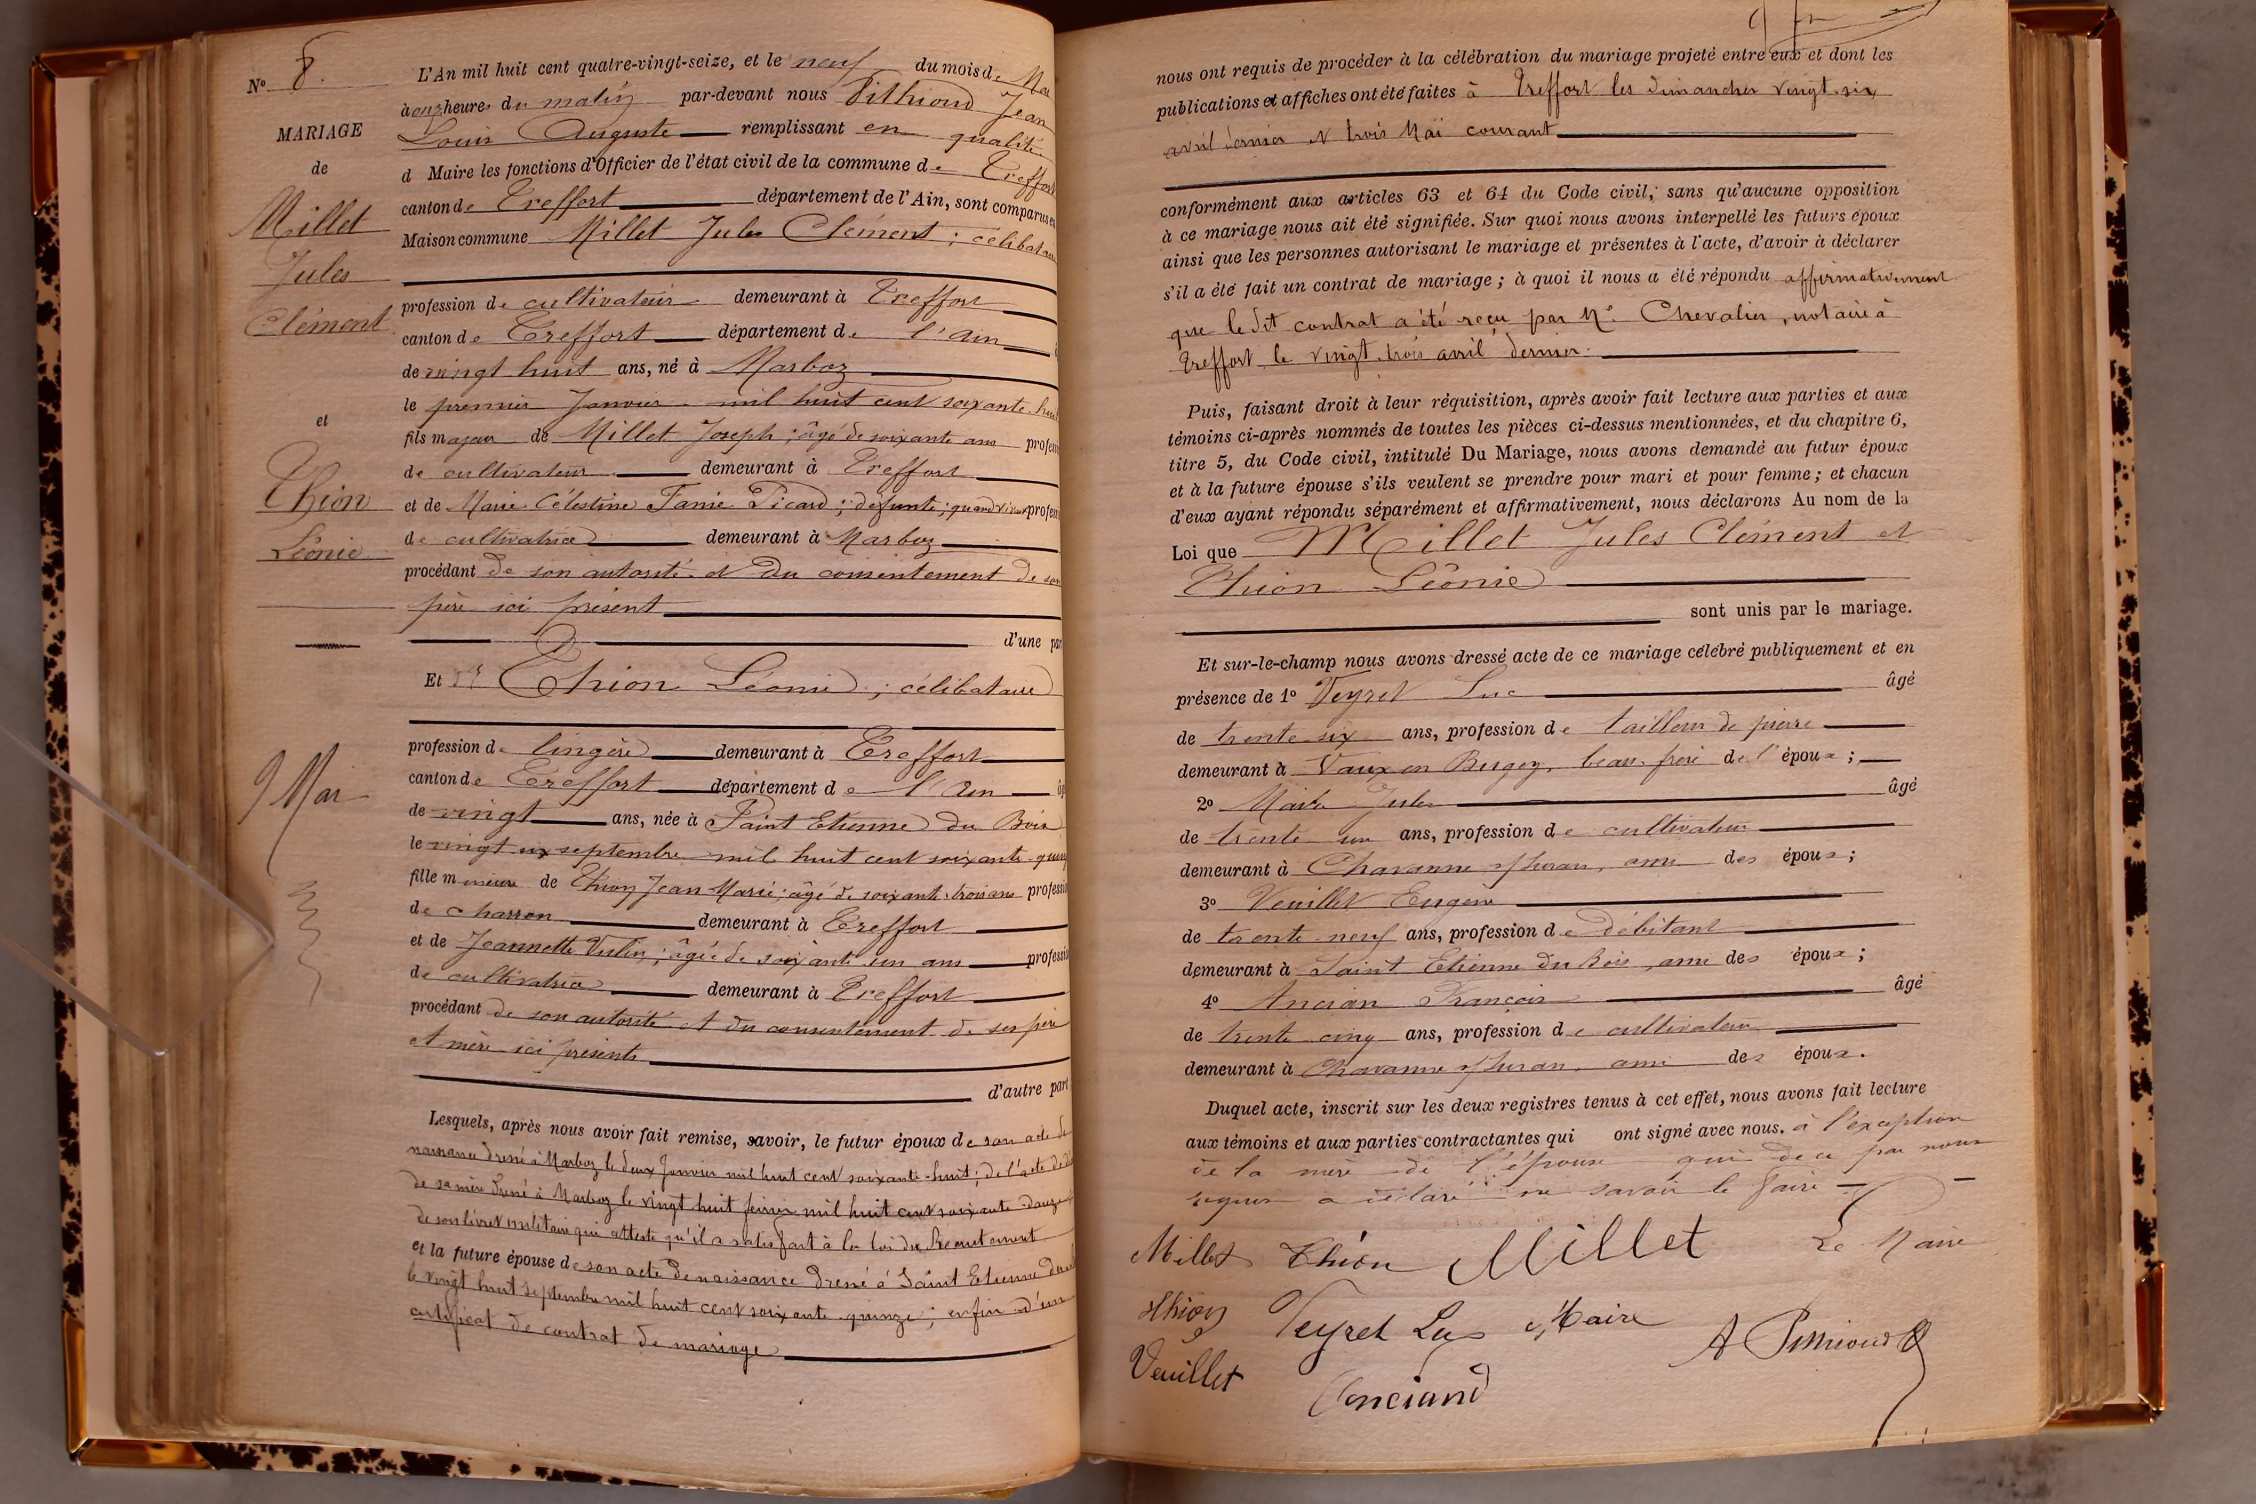 N° 8.
MARIAGE
de
Millet
Jules
Clément
et
Thion
Léonie
9 Mai
L'An mil huit cent quatre-vingt-seize, et le neuf du mois de Mai
à onze heures du matin par-devant nous Pithioud Jean
Louis Auguste remplissant en qualité
d Maire les fonctions d'Officier de l'état civil de la commune de Treffort
canton de Treffort département de l'Ain, sont comparus en
Maison commune Millet Jules Clément ; célibataire
profession de cultivateur demeurant à Treffort
canton de Treffort département de l'Ain
de vingt huit ans, né à Marboz
le premier Janvier mil huit cent soixante huit
fils majeur de Millet Joseph ; âgé de soixante ans profession
de cultivateur demeurant à Treffort
et de Marie Célestine Fanie Picard ; défunte ; quand vivait profession
de cultivatrice demeurant à Marboz
procédant de son autorité et du consentement de son
père ici présent
d'une part
Et Thion Léonie ; célibataire
profession de lingère demeurant à Treffort
canton de Treffort département de l'Ain âgée
de vingt ans, née à Saint Etienne du Bois
le vingt six septembre mil huit cent soixante quinze
fille mineure de Thion Jean Marie ; âgé de soixante trois ans profession
de charron demeurant à Treffort
et de Jeannette Vulin ; âgée de soixante un ans profession
de cultivatrice demeurant à Treffort
procédant de son autorité et du consentement de ses père
et mère ici présents
d'autre part
Lesquels, après nous avoir fait remise, savoir, le futur époux de son acte de
naissance dressé à Marboz le deux Janvier mil huit cent soixante-huit ; de l'acte de
de sa mère dressé à Marboz le vingt huit février mil huit cent soixante douze
de son livret militaire qui atteste qu'il a satisfait à la loi du Recrutement
et la future épouse de son acte de naissance dressé à Saint Etienne du
le vingt huit septembre mil huit cent soixante quinze ; enfin d'un
certificat de contrat de mariage
nous ont requis de procéder à la célébration du mariage projeté entre eux et dont les
publications et affiches ont été faites à Treffort les dimanches vingt-six
avril dernier et trois Mai courant
conformément aux articles 63 et 64 du Code civil, sans qu'aucune opposition
à ce mariage nous ait été signifiée. Sur quoi nous avons interpellé les futurs époux
ainsi que les personnes autorisant le mariage et présentes à l'acte, d'avoir à déclarer
s'il a été fait un contrat de mariage ; à quoi il nous a été répondu affirmativement
que le dit contrat a été reçu par Me Chevalier, notaire à
Treffort le vingt-trois avril dernier.
Puis, faisant droit à leur réquisition, après avoir fait lecture aux parties et aux
témoins ci-après nommés de toutes les pièces ci-dessus mentionnées, et du chapitre 6,
titre 5, du Code civil, intitulé Du Mariage, nous avons demandé au futur époux
et à la future épouse s'ils veulent se prendre pour mari et pour femme ; et chacun
d'eux ayant répondu séparément et affirmativement, nous déclarons Au nom de la
Loi que Millet Jules Clément et
Thion Léonie
sont unis par le mariage.
Et sur-le-champ nous avons dressé acte de ce mariage célébré publiquement et en
présence de 1° Veyret Luc âgé
de trente six ans, profession de tailleur de pierre
demeurant à Vaux en Bugey, beau-frère de l'époux ;
2° Maire Jules âgé
de trente un ans, profession de cultivateur
demeurant à Chavannes s/Suran, ami des époux ;
3° Veuillet Eugène
de trente neuf ans, profession de débitant
demeurant à Saint Etienne du Bois, ami des époux ;
4° Ancian François âgé
de trente cinq ans, profession de cultivateur
demeurant à Chavannes s/Suran, ami des époux.
Duquel acte, inscrit sur les deux registres tenus à cet effet, nous avons fait lecture
aux témoins et aux parties contractantes qui ont signé avec nous. à l'exception
de la mère de l'épouse qui de ce par nous
requis a déclaré ne savoir le faire
Millet Thion Millet Le Maire
Thion Veyret Luc Maire
A Pithioud
Veuillet Anciand